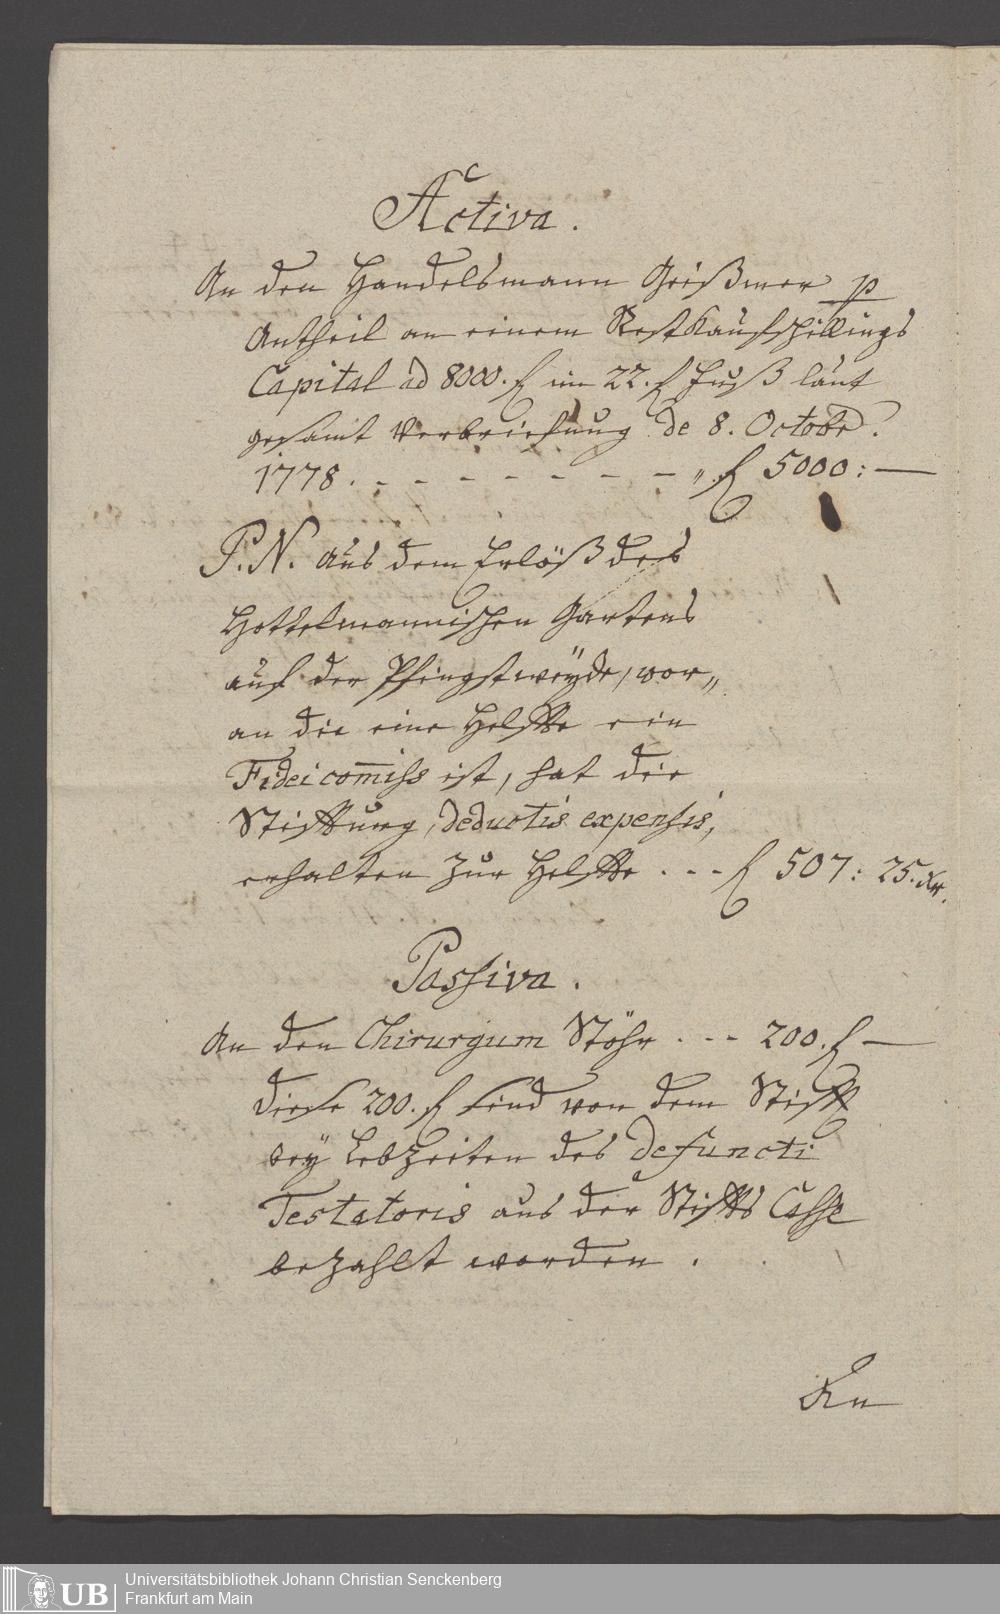 Activa.
An den Handelsmann Geißmer p
Antheil an einem Restkaufschillings
Capital ad 8000. f im 22. f Fuß laut
gesamt Verbriefung de 8. Octobr.
1778. - - - - - - - - " f 5000: —
P.N. aus dem Erlöß des
Hottelmannischen Gartens
auf der Pfingstweyde, wor„
an die eine Helfte ein
Fideicom̅iss ist, hat die
Stiftung, deductis expensis,
erhalten zur Helfte . - - f 507: 25. Xr.
Passiva.
An den Chirurgum Stöhr . - - 200. f —
diese 200. f sind von dem Stift
bey Lebzeiten des defuncti
Testatoris aus der Stifts Casse
bezahlt worden .
An
UB Universitätsbibliothek Johann Christian Senckenberg
Frankfurt am Main